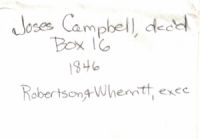 Joses Campbell, dec'd
Box 16
1846
Robertson & Wherritt, exec